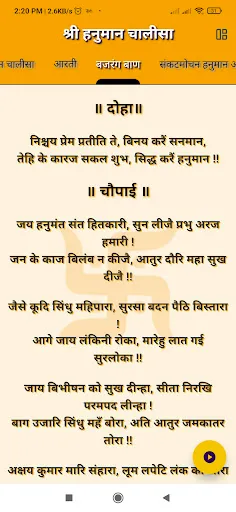 2:20 PM | 2.6KB/s
श्री हनुमान चालीसा
चालीसा आरती बजरंग बाण संकटमोचन हनुमान
॥ दोहा॥
निश्चय प्रेम प्रतीति ते, बिनय करें सनमान,
तेहि के कारज सकल शुभ, सिद्ध करैं हनुमान !!
॥ चौपाई ॥
जय हनुमंत संत हितकारी, सुन लीजै प्रभु अरज
हमारी !
जन के काज बिलंब न कीजै, आतुर दौरि महा सुख
दीजै !!
जैसे कूदि सिंधु महिपारा, सुरसा बदन पैठि बिस्तारा
!
आगे जाय लंकिनी रोका, मारेहु लात गई
सुरलोका !!
जाय बिभीषन को सुख दीन्हा, सीता निरखि
परमपद लीन्हा !
बाग उजारि सिंधु महँ बोरा, अति आतुर जमकातर
तोरा !!
अक्षय कुमार मारि संहारा, लूम लपेटि लंक को